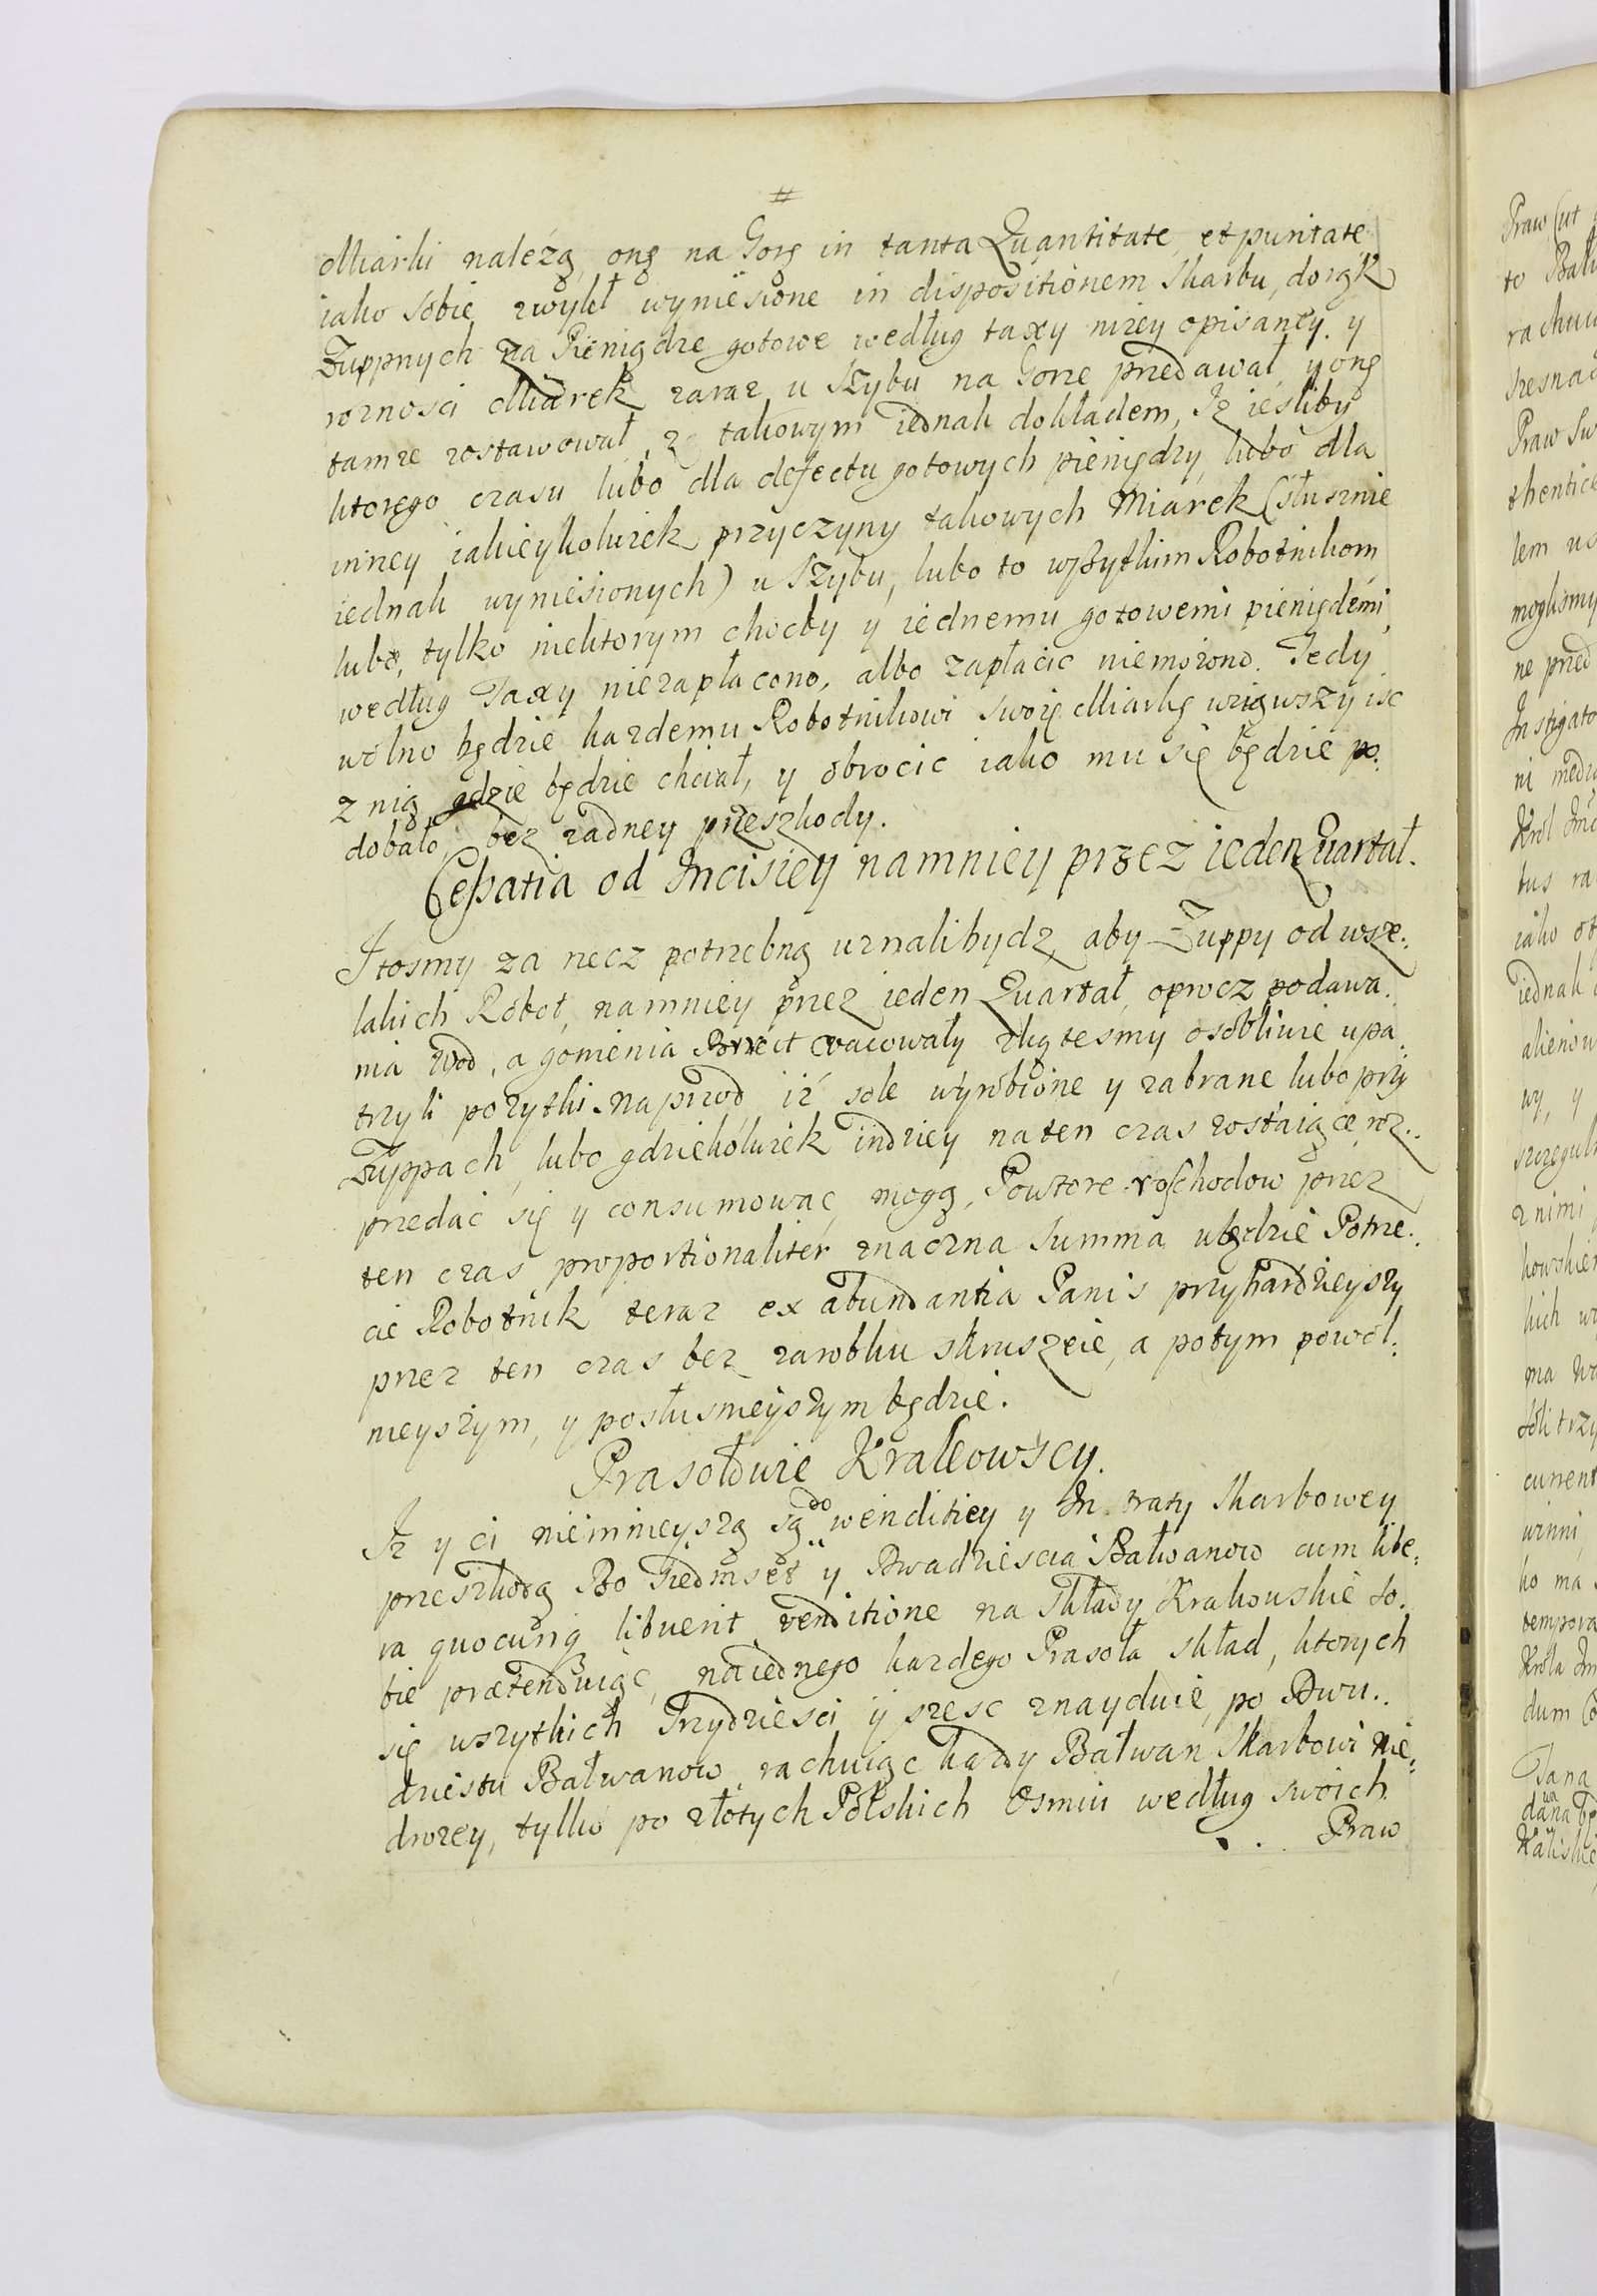 #
Miarki należą, onę na Gorę in tanta Quantitate, et puritate
iako sobie zwykł wyniesione in dispositionem Skarbu, do rąk
Zuppnych za Pieniądze gotowe według taxy niżey opisaney. y
roznosci Miarek zaraz u Szybu na Gorze przedawał, y onę
tamze zostawował, z takowym iednak dokładem, Iz iesliby
ktorego czasu lubo dla defectu gotowych pieniędzy, lubo dla
inney iakieykolwiek przyczyny takowych Miarek (słusznie
iednak wyniesionych) u Szybu, lubo to wszytkim Robotnikom
lubo, tylko niektorym chocby y iednemu gotowemi pieniędzmi,
według Taxy niezapłacono, albo zapłacic niemożono. Tedy
wolno będzie kazdemu Robotnikowi swoię Miarkę wziąwszy isc
z nią, gdzie będzie chciał, y obrocic iako mu się będzie po:
dobało, bez zadney przeszkody.
Cessatia od Incisiey namniey przez ieden Quartał.
Itosmy za rzecz potrzebną uznali bydz, aby Zuppy od wsze:
lakich Robot, namniey przez ieden Quartał, oprocz podawa:
nia Wod, a gonienia Brzeit vacowały zkąd tesmy osobliwie upa:
trzyli pozytki. naprzod, iż sole wyrobione y zabrane lubo przy
Zuppach, lubo gdziekolwiek indziey na ten czas zostaiące roz:
przedać się y consumować mogą, Powtore roschodow przez
ten czas proportionaliter znaczna Summa ubędzie Potrze:
cie Robotnik teraz ex abundantia Panis przyhardzieyszy
przez ten czas bez zarobku skruszeie, a potym powol:
nieyszym, y posłusznieyszym będzie.
Prasołowie Krakowscy.
Iz y ci niemnieyszą są do wenditiey y In traty Skarbowey
przeszkodą Bo Siedmset y Dwadziescia Bałwanow cum libe:
ra quocunq libuerit venditione na Składy Krakowskie so:
bie prætenduiąc, na iednego kazdego Prasoła skład, ktorych
się wszytkich Trzydziesci y szesc znayduie, po Dwu:
dziestu Bałwanow, rachuiąc kazdy Bałwan Skarbowi nie:
drozey, tylko po złotych Polskich Osmiu według swoich
Praw